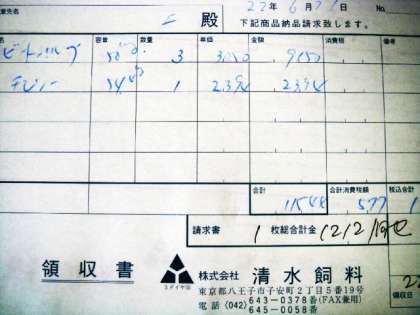 業先名 殿 22年6月 日 No.
下記商品納品請求致します。
品名 容量 数量 単価 金額 消費税 備考
ビートパルプ 3 3050 9150
1 2394 2394
合計 11544 合計消費税額 577 税込合計
請求書 1 枚総合計金 12,121
領収書 ミツイヤ印 株式会社 清水飼料
東京都八王子市子安町2丁目5番19号
電話 (042) 643-0378番(FAX兼用)
645-0058番 領収日